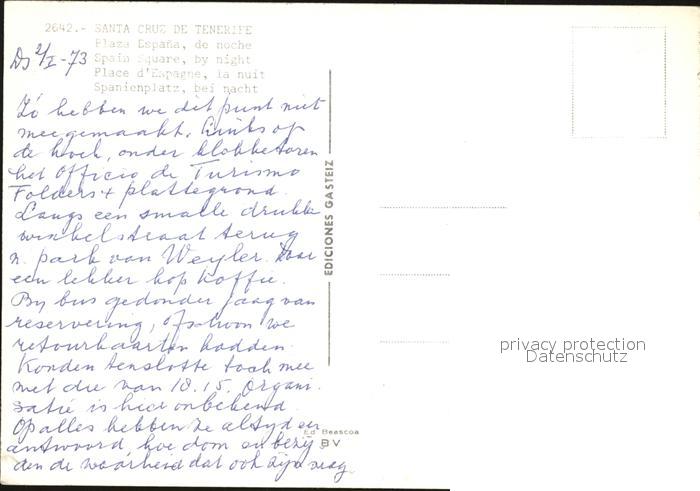 2642.- SANTA CRUZ DE TENERIFE
Plaza España, de noche
Spain Square, by night
Place d'Espagne, la nuit
Spanienplatz, bei nacht
2/I-73
Zó hebben we dit punt niet
meegemaakt. Links op
de hoek, onder klokketoren
het Officio de Turismo
Folders + plattegrond.
Langs een smalle drukke
winkelstraat terug
n. park van Weyler. Daar
een lekker kop koffie.
By bus gedonder
reservering, ofschoon we
retourkaarten hadden.
Konden tenslotte toch mee
met die van 18.15. Organi-
satie is hier onbekend.
Op alles hebben ze altyd een
antwoord, hoe dom en bezij-
den de waarheid dat ook zijn mag.
EDICIONES GASTEIZ
Ed Beascoa
BV
privacy protection
Datenschutz